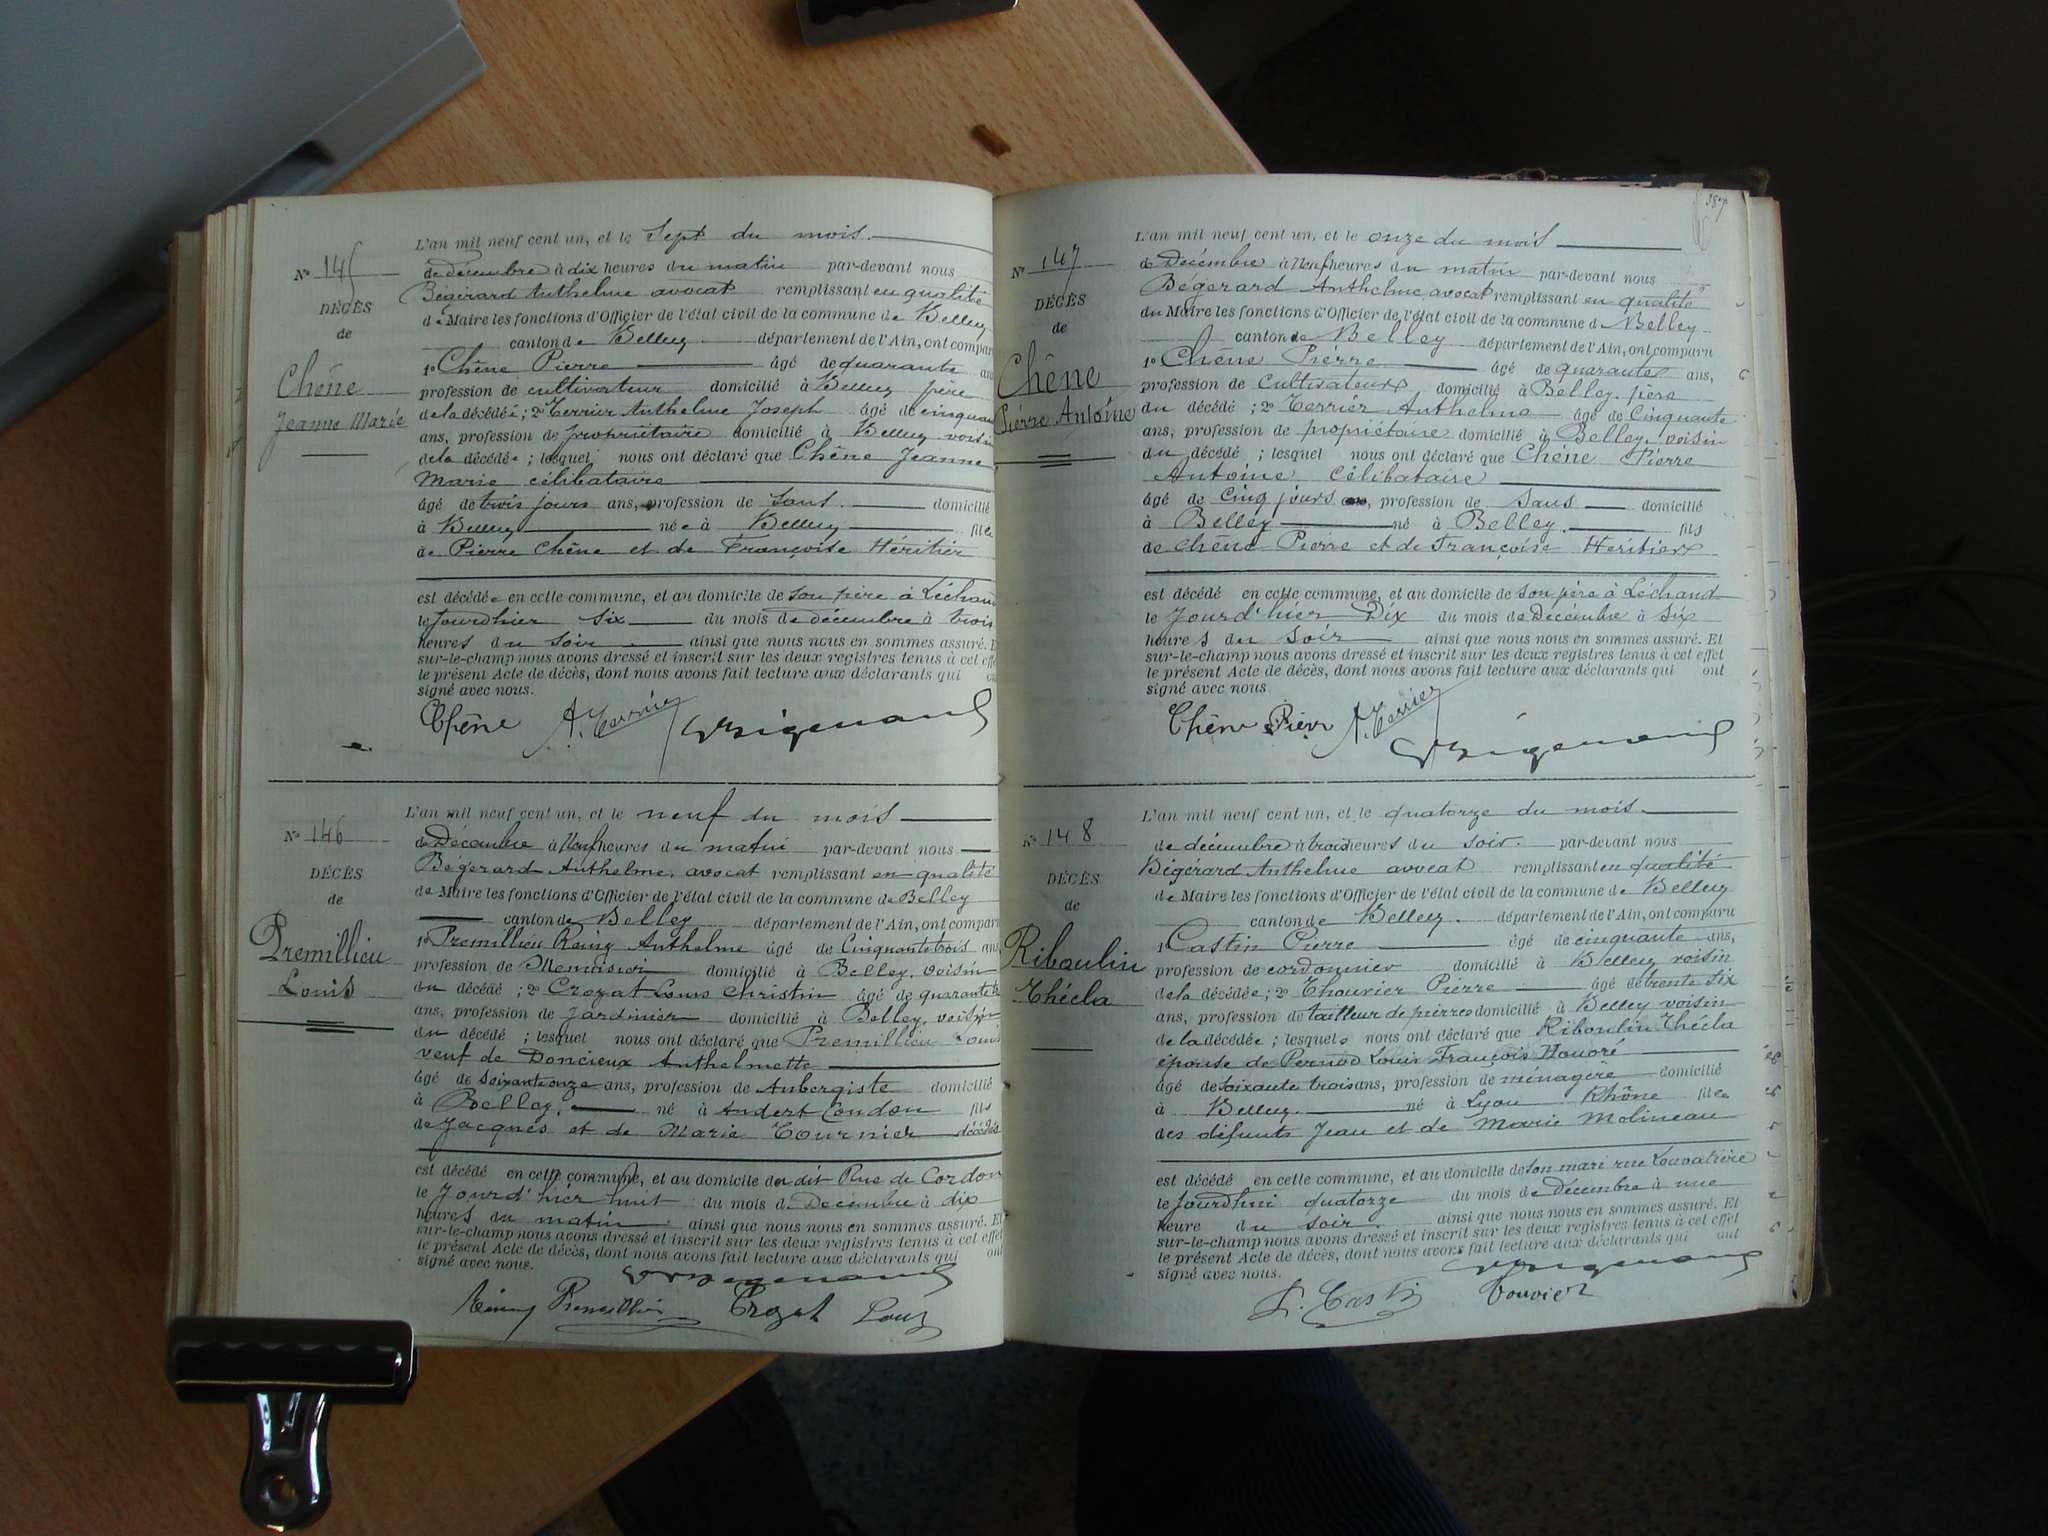 N° 145
DÉCÈS
de
Chêne
Jeanne Marie
L'an mil neuf cent un, et le Sept du mois
de décembre à dix heures du matin par-devant nous
Bégérard Anthelme avocat remplissant en qualité
de Maire les fonctions d'Officier de l'état civil de la commune de Belley
canton de Belley département de l'Ain, ont comparu
1° Chêne Pierre âgé de quarante ans
profession de cultivateur domicilié à Belley père
de la décédée ; 2° Terrier Anthelme Joseph âgé de cinquante
ans, profession de propriétaire domicilié à Belley voisin
de la décédée ; lesquel nous ont déclaré que Chêne Jeanne
Marie célibataire
âgé de trois jours ans, profession de sans domicilié
à Belley née à Belley fille
de Pierre Chêne et de Françoise Héritier
est décédée en cette commune, et au domicile de son père à Léchaud
le jourdhier six du mois de décembre à trois
heures du soir ainsi que nous nous en sommes assuré. Et
sur-le-champ nous avons dressé et inscrit sur les deux registres tenus à cet effet
le présent Acte de décès, dont nous avons fait lecture aux déclarants qui ont
signé avec nous.
Chêne A. Terrier
N° 146
DÉCÈS
de
Premillieu
Louis
L'an mil neuf cent un, et le neuf du mois
de Décembre à Neuf heures du matin par-devant nous
Bégérard Anthelme, avocat remplissant en qualité
de Maire les fonctions d'Officier de l'état civil de la commune de Belley
canton de Belley département de l'Ain, ont comparu
1° Premillieu Remy Anthelme âgé de Cinquante trois ans,
profession de Menuisier domicilié à Belley, voisin
du décédé ; 2° Crozat Louis Christin âgé de quarante
ans, profession de Jardinier domicilié à Belley, voisin
du décédé ; lesquel nous ont déclaré que Premillieu Louis
veuf de Doncieux Anthelmette
âgé de soixante onze ans, profession de Aubergiste domicilié
à Belley, né à Andert Condon fils
de Jacques et de Marie Tournier décédés
est décédé en cette commune, et au domicile du dit Rue de Cordon
le Jourd'hier huit du mois de Décembre à dix
heures du matin ainsi que nous nous en sommes assuré. Et
sur-le-champ nous avons dressé et inscrit sur les deux registres tenus à cet effet
le présent Acte de décès, dont nous avons fait lecture aux déclarants qui ont
signé avec nous.
Rémy Premillieu Crozat Louis
387
N° 147
DÉCÈS
de
Chêne
Pierre Antoine
L'an mil neuf cent un, et le onze du mois
de Décembre à Neuf heures du matin par-devant nous
Bégerard Anthelme, avocat remplissant en qualité
du Maire les fonctions d'Officier de l'état civil de la commune de Belley
canton de Belley département de l'Ain, ont comparu
1° Chêne Pierre âgé de quarante ans,
profession de Cultivateur domicilié à Belley, père
du décédé ; 2° Terrier Anthelme âgé de Cinquante
ans, profession de propriétaire domicilié à Belley, voisin
du décédé ; lesquel nous ont déclaré que Chêne Pierre
Antoine Célibataire
âgé de Cinq jours, profession de sans domicilié
à Belley né à Belley. fils
de Chêne Pierre et de Françoise Heritier
est décédé en cette commune, et au domicile de son père à Léchaud
le Jourd'hier Dix du mois de Décembre à six
heures du soir ainsi que nous nous en sommes assuré. Et
sur-le-champ nous avons dressé et inscrit sur les deux registres tenus à cet effet
le présent Acte de décès, dont nous avons fait lecture aux déclarants qui ont
signé avec nous.
Chêne Pierr A. Terrier
N° 148
DÉCÈS
de
Riboulin
Thécla
L'an mil neuf cent un, et le quatorze du mois
de décembre à trois heures du soir. par-devant nous
Bégérard Anthelme avocat remplissant en qualité
de Maire les fonctions d'Officier de l'état civil de la commune de Belley
canton de Belley. département de l'Ain, ont comparu
1° Castin Pierre âgé de cinquante ans,
profession de cordonnier domicilié à Belley voisin
de la décédée ; 2° Thouvier Pierre âgé de trente six
ans, profession de tailleur de pierres domicilié à Belley voisin
de la décédée ; lesquels nous ont déclaré que Riboulin Thécla
épouse de Pernod Louis François Honoré
âgé de soixante trois ans, profession de ménagère domicilié
à Belley. né à Lyon Rhône fille
des défunts Jean et de Marie Molineau
est décédé en cette commune, et au domicile de son mari rue Louvatière
le jourdhui quatorze du mois de décembre à une
heure du soir. ainsi que nous nous en sommes assuré. Et
sur-le-champ nous avons dressé et inscrit sur les deux registres tenus à cet effet
le présent Acte de décès, dont nous avons fait lecture aux déclarants qui ont
signé avec nous.